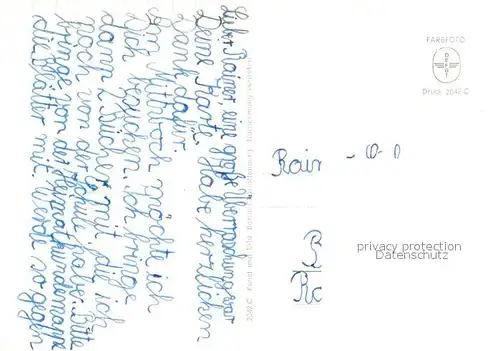 Lieber Rainer, eine große Überraschung war
Deine Karte. Habe herzlichen
Dank dafür.
Am Mittwoch möchte ich
Dich besuchen. Ich bringe
dann 2 Bücher mit, die ich
noch von der Schule habe. Bitte
bringe von der Heimatkundemappe
die Blätter mit. Werde so gegen
2042 C
FARBFOTO
Druck 2042 C
Rain
privacy protection
Datenschutz